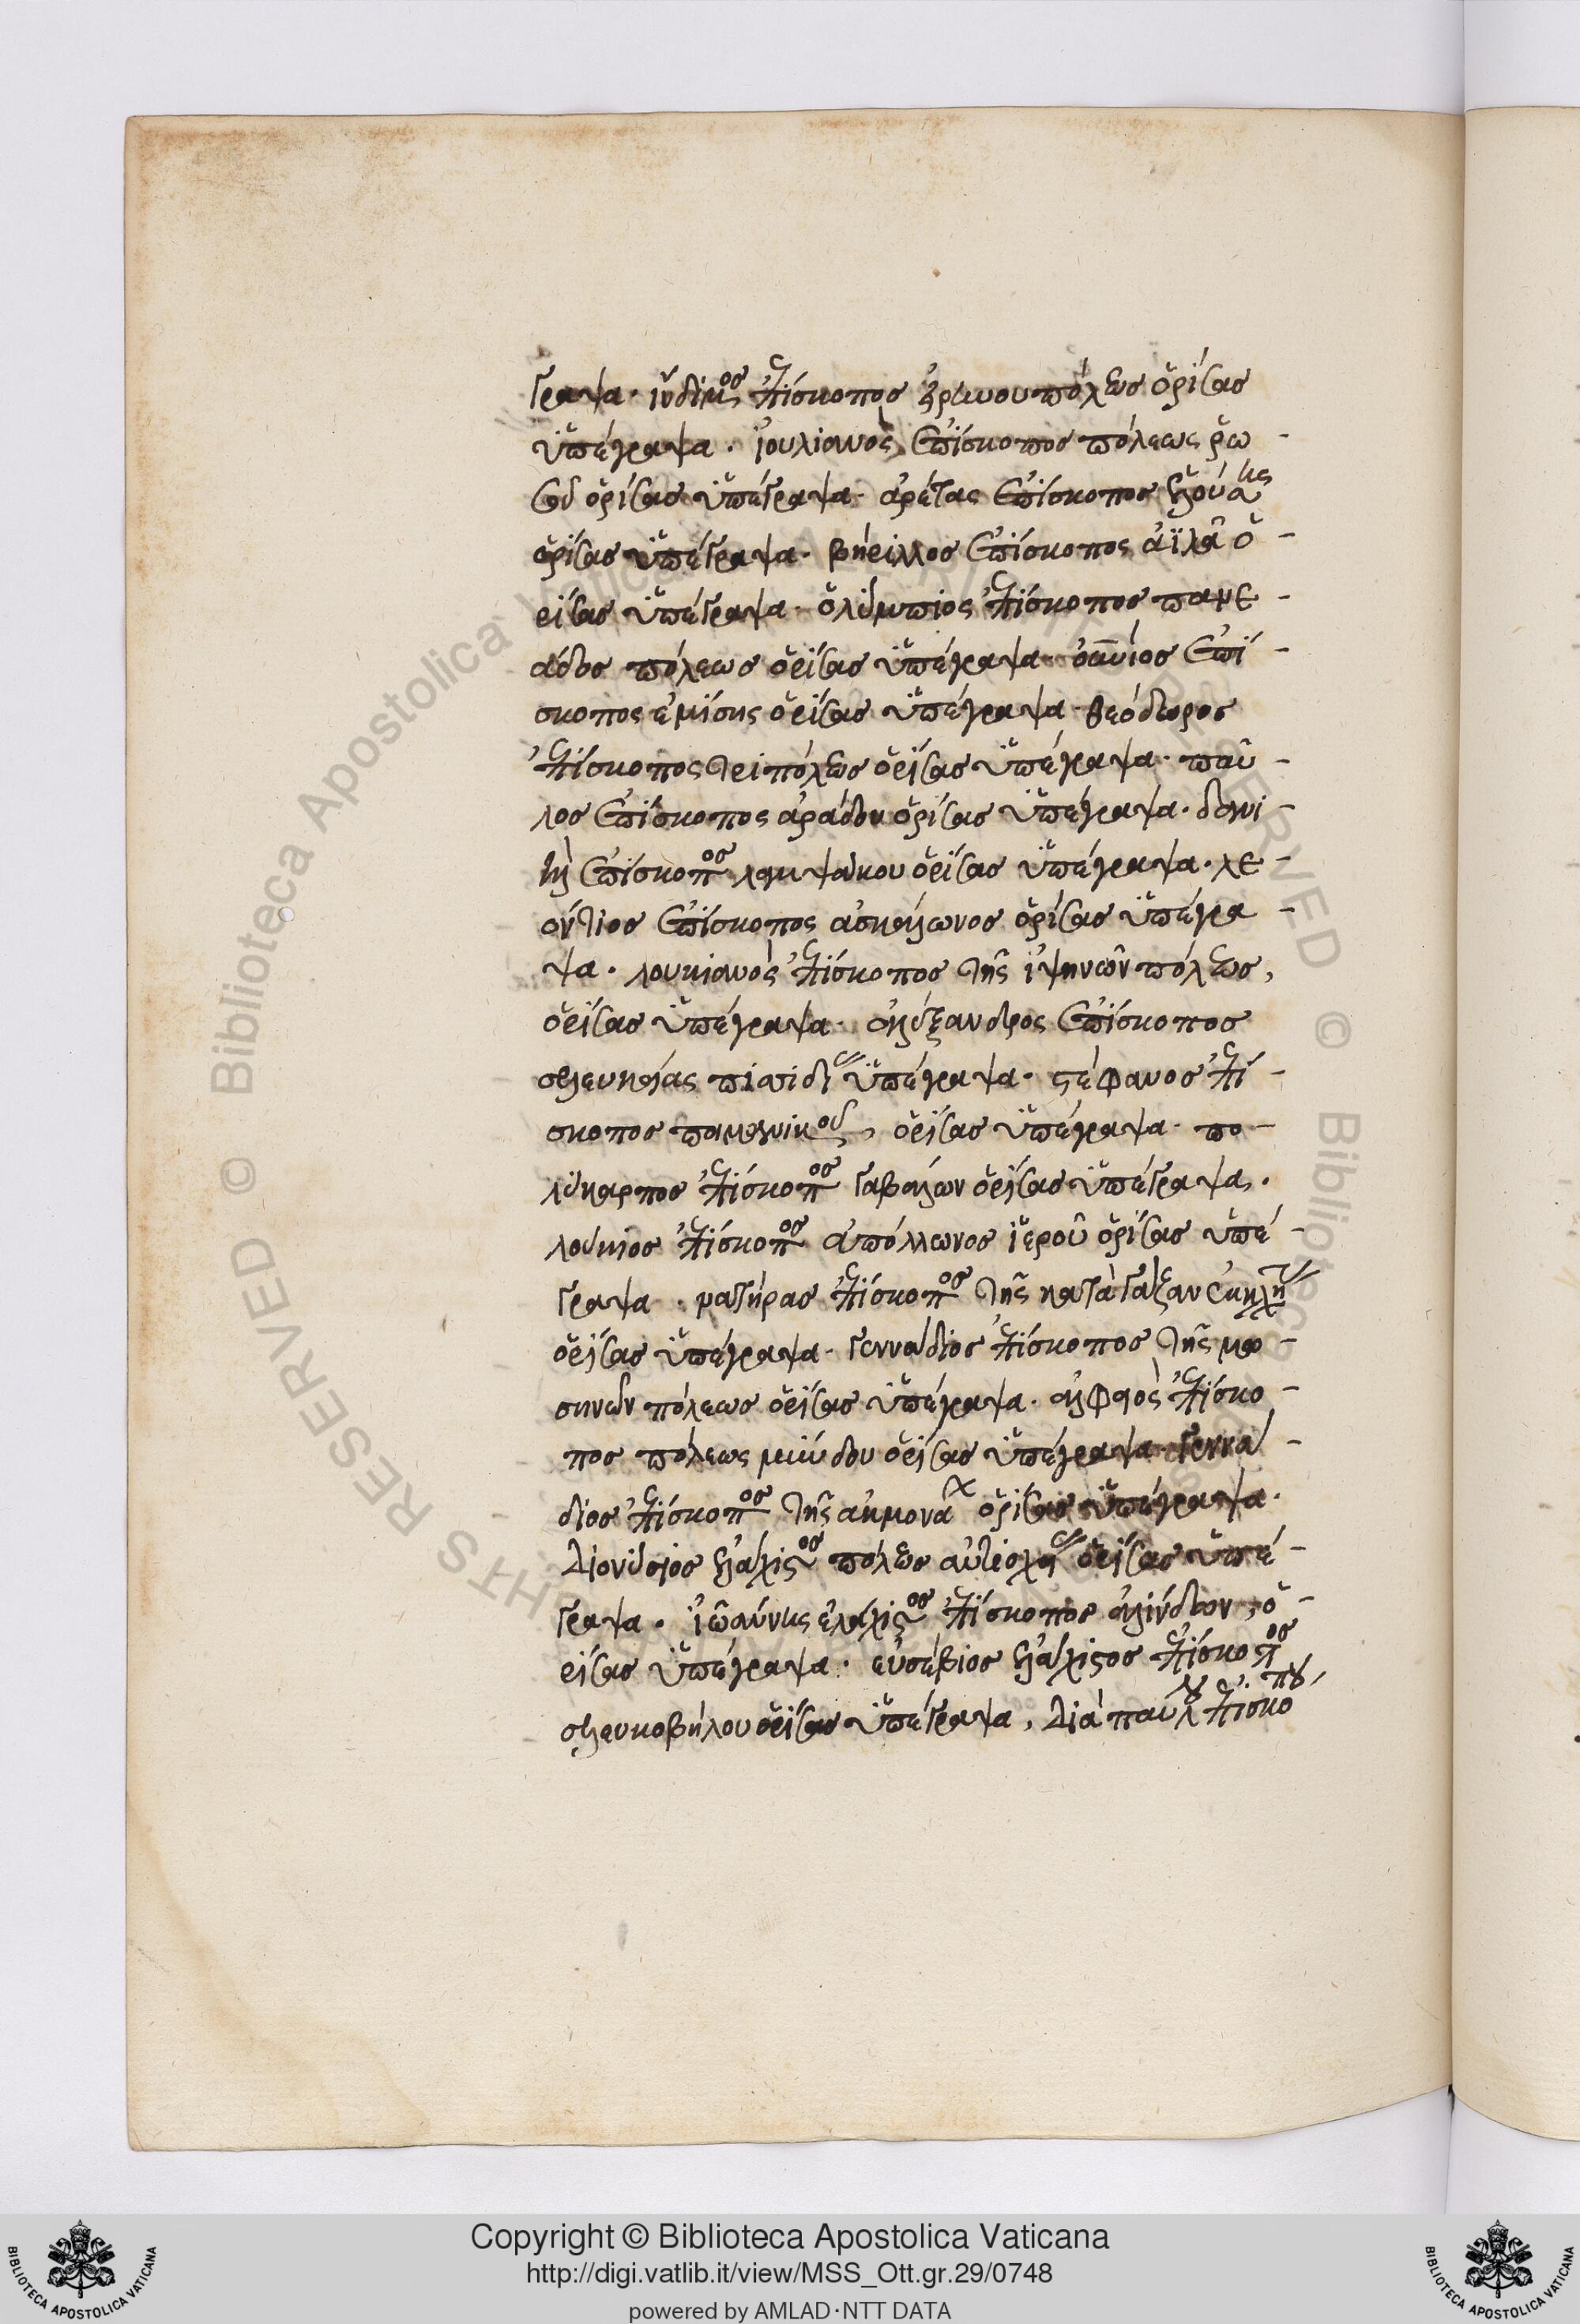 γραψα. ἰύδιμος ἐπίσκοπος εἰρινουπόλεως ὁρίσας
ὑπέγραψα. ἰουλιανὸς ἐπίσκοπος πόλεως ῥω
σοῦ ὁρίσας ὑπέγραψα. ἀρέτας ἐπίσκοπος ἐλούσης
ὁρίσας ὑπέγραψα. βήριλλος ἐπίσκοπος ἀϊλᾶ ὁ
ρίσας ὑπέγραψα. ὀλύμπιος ἐπίσκοπος πανε
άδος πόλεως ὁρίσας ὑπέγραψα. ἐπί
σκοπος ἐμίσης ὁρίσας ὑπέγραψα. θεόδωρος
ἐπίσκοπος τριπόλεως ὁρίσας ὑπέγραψα. παῦ
λος ἐπίσκοπος ἀράδου ὁρίσας ὑπέγραψα. δανι
ὴλ ἐπίσκοπος λαμψάκου ὁρίσας ὑπέγραψα. λε
όντιος ἐπίσκοπος ἀσκάλωνος ὁρίσας ὑπέγρα
ψα. λουκιανὸς ἐπίσκοπος τῆς ἰψηνῶν πόλεως,
ὁρίσας ὑπέγραψα. ἀλέξανδρος ἐπίσκοπος
σελευκείας πισιδίας ὑπέγραψα. στέφανος ἐπί
σκοπος ὁρίσας ὑπέγραψα. πο
λύκαρπος ἐπίσκοπος γαβάλων ὁρίσας ὑπέγραψα.
λούκιος ἐπίσκοπος ἀπόλλωνος ἱεροῦ ὁρίσας ὑπέ
γραψα. ματήρας ἐπίσκοπος τῆς κατὰ γάζαν ἐκκλησίας
ὁρίσας ὑπέγραψα. γεννάδιος ἐπίσκοπος τῆς μο
σηνῶν πόλεως ὁρίσας ὑπέγραψα. ἀλφιὸς ἐπίσκο
πος πόλεως μύνδου ὁρίσας ὑπέγραψα. γεννά
διος ἐπίσκοπος τῆς ἀκμονα ὁρίσας ὑπέγραψα.
Διονύσιος ἐλάχιστος πόλεως ἀντιοχείας ὁρίσας ὑπέ
γραψα. ἰωάννης ἐλάχιστος ἐπίσκοπος ἀλίνδων, ὁ
ρίσας ὑπέγραψα. εὐσέβιος ἐλάχιστος ἐπίσκοπος
σελευκοβήλου ὁρίσας ὑπέγραψα, Διὰ παύλου ἐπισκόπου
Copyright © Biblioteca Apostolica Vaticana
http://digi.vatlib.it/view/MSS_Ott.gr.29/0748
powered by AMLAD·NTT DATA